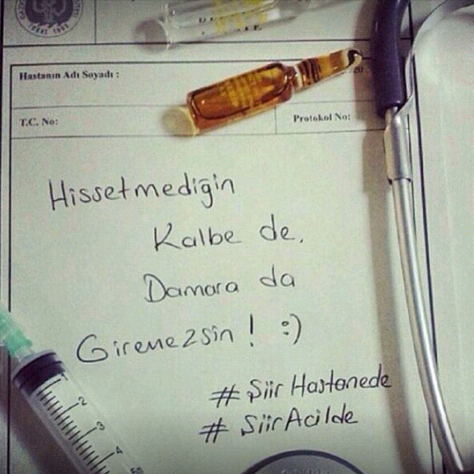 Hastanın Adı Soyadı :
T.C. No:
Protokol No:
Hissetmediğin
Kalbe de,
Damara da
Giremezsin ! :)
# ŞiirHastanede
# ŞiirAcilde
2
3
4